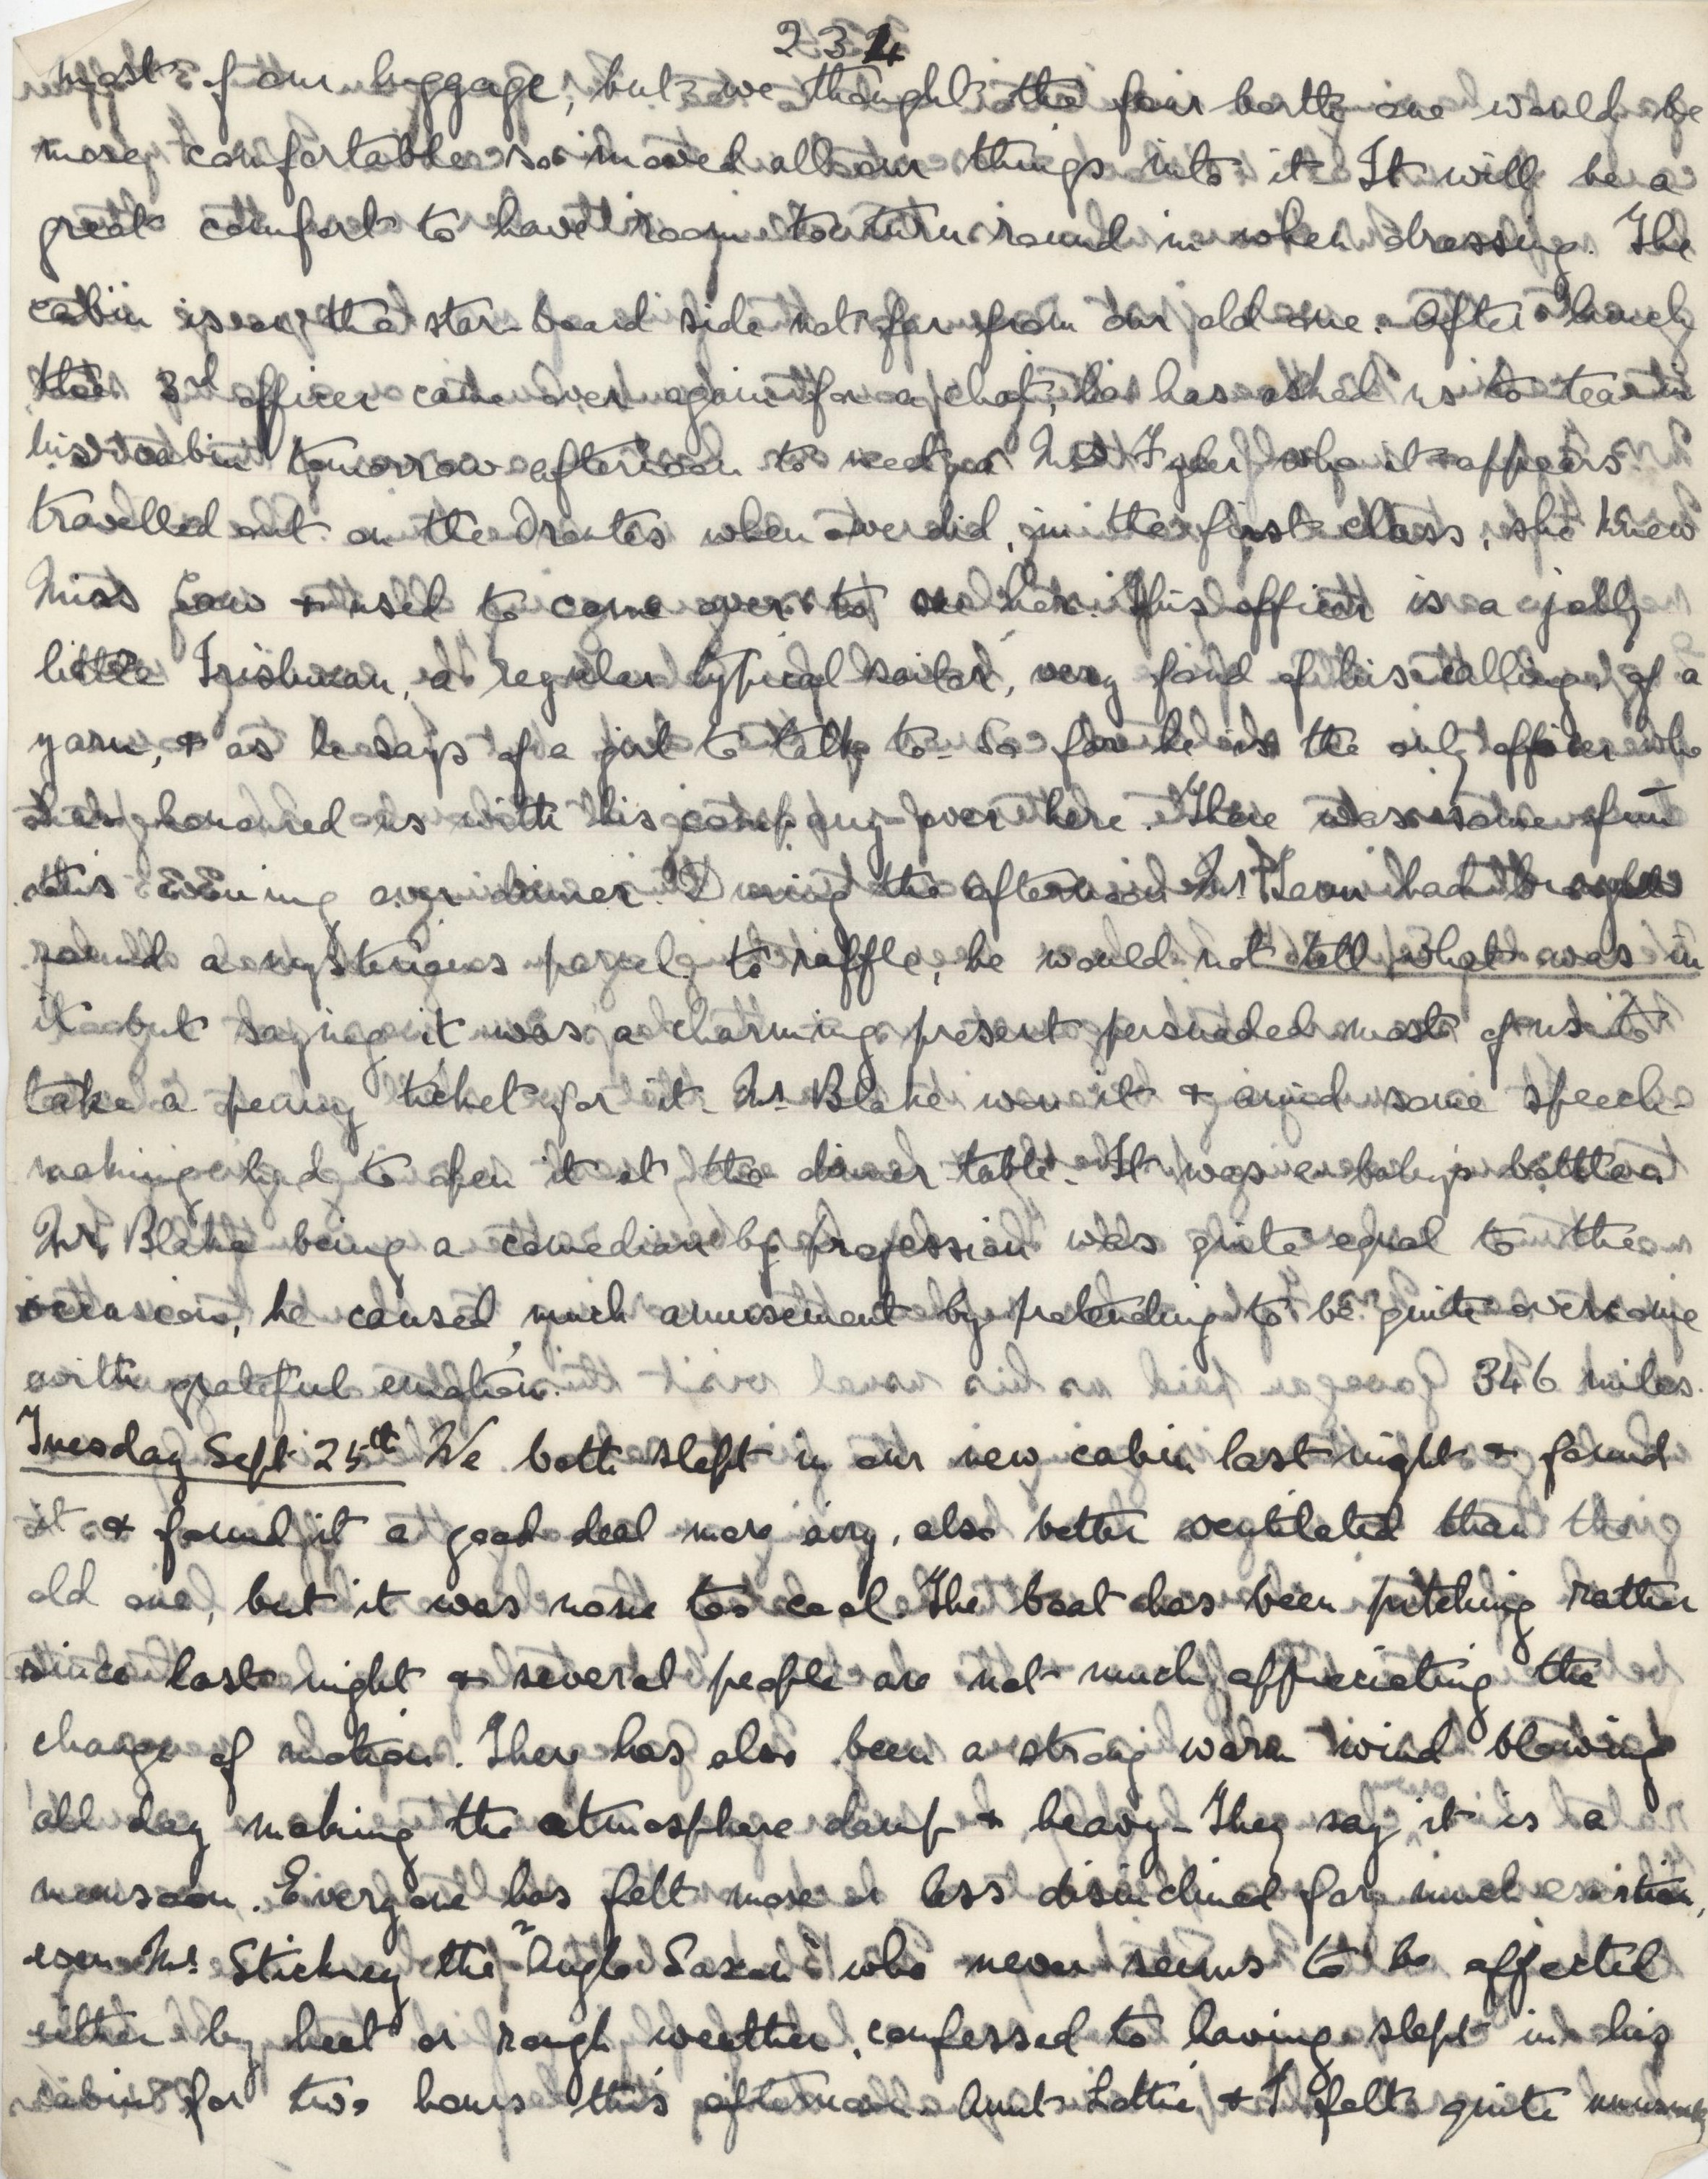 234
most of our luggage, but we thought the four berth one would be
more comfortable so moved all our things into it. It will be a
great comfort to have room to turn round in when dressing. The
cabin is on the star-board side not far from our old one. After lunch
the 3rd officer came over again for a chat, he has asked us to tea in
his cabin tomorrow afternoon to meet a who it appears
travelled out on the Orontes when we did, in the first class, she knew
Miss & used to come over to see her. This officer is a jolly
little Irishman, a regular typical sailor, very fond of his calling, of a
yarn, & as he says of a girl to talk to. So far he is the only officer who
has honoured us with his company over here. There was some fun
this evening over dinner. During the afternoon Mr had brought
round a mysterious parcel to raffle, he would not tell what was in
it but saying it was a charming present persuaded most of us to
take a penny ticket for it. Mr. Blake won it & amid some speech-
making had to open it at the dinner table. It was a baby's bottle.
Mr. Blake being a comedian by profession was quite equal to the
occasion, he caused much amusement by pretending to be quite overcome
with grateful emotion. 346 miles.
Tuesday Sept 25th We both slept in our new cabin last night & found
it & found it a good deal more airy, also better ventilated than the
old one, but it was none too cool. The boat has been pitching rather
since last night & several people are not much appreciating the
change of motion. There has also been a strong warm wind blowing
all day making the atmosphere damp & heavy. They say it is a
monsoon. Everyone has felt more or less disinclined for much exertion,
even Mr Stickney the "Anglo Saxon" who never seems to be affected
either by heat or rough weather, confessed to having slept in his
cabin for two hours this afternoon. Aunt Lottie & I felt quite